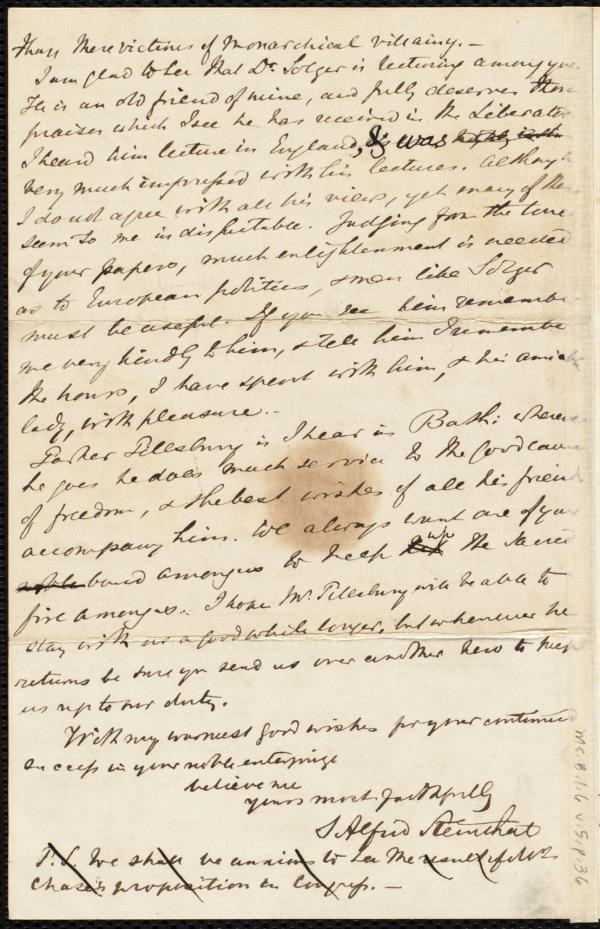 than mere victims of monarchical villainy. —
I am glad to see that Dr. Solger is lecturing among you.
He is an old friend of mine, and fully deserves those
praises which I see he has received in the Liberator
I heard him lecture in England, & was
very much impressed with his lectures. Although
I do not agree with all his views, yet many of them
seem to me indisputable. Judging from the tone
of your papers, much enlightenment is needed
as to European politics, & men like Solger
must be useful. If you see him remember
me very kindly to him, & tell him I remember
the hours, I have spent with him, & his amiable
lady, with pleasure. -
Parker Pillsbury is I hear in Bath: wherever
he goes he does much service to the good cause
of freedom, & the best wishes of all his friends
accompany him. We always want one of your
noble band among us to keep up the sacred
fire among us. I hope Mr. Pillsbury will be able to
stay with us a good while longer, but whenever he
returns be sure you send us over another hero to keep
us up to our duty.
With my warmest good wishes for your continued
success in your noble enterprize
believe me
yours most faithfully
S Alfred Steinthal
P.S. We shall be anxious to see the result of Mr
Chase's proposition in Congress. —
Ms.B.1.6 v.5, p.36